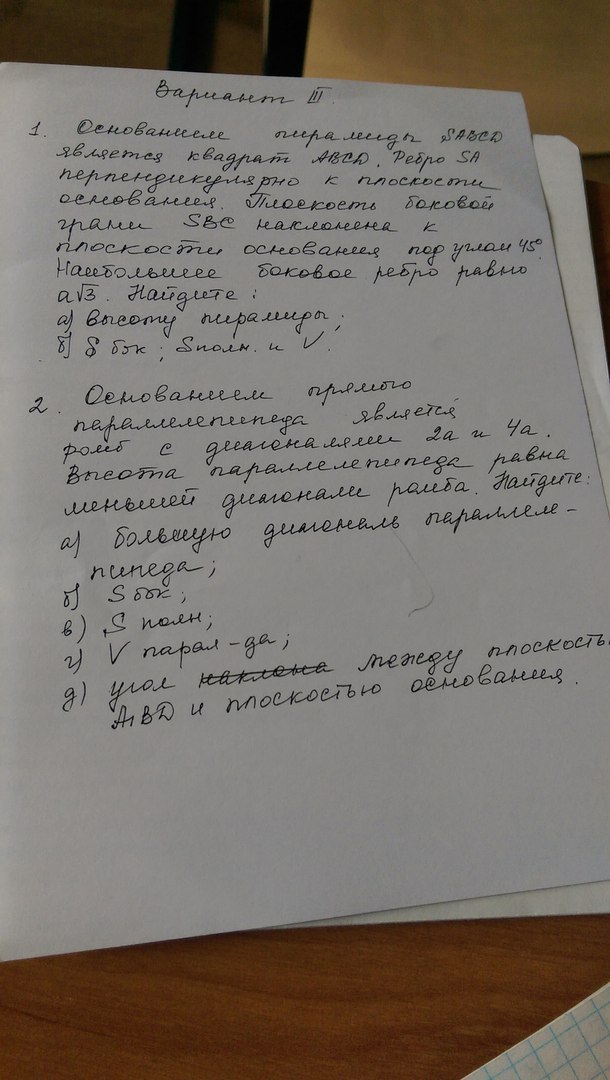 Вариант III.
1. Основанием пирамиды SABCD
является квадрат ABCD. Ребро SA
перпендикулярно к плоскости
основания. Плоскость боковой
грани SBC наклонена к
плоскости основания под углом 45°.
Наибольшее боковое ребро равно
a√3. Найдите:
а) высоту пирамиды;
б) S бок; Sполн. и V.
2. Основанием прямого
параллелепипеда является
ромб с диагоналями 2a и 4a.
Высота параллелепипеда равна
меньшей диагонали ромба. Найдите:
а) большую диагональ параллеле-
пипеда;
б) S бок;
в) S полн;
г) V парал-да;
д) угол наклона между плоскость
A₁BD и плоскостью основания.